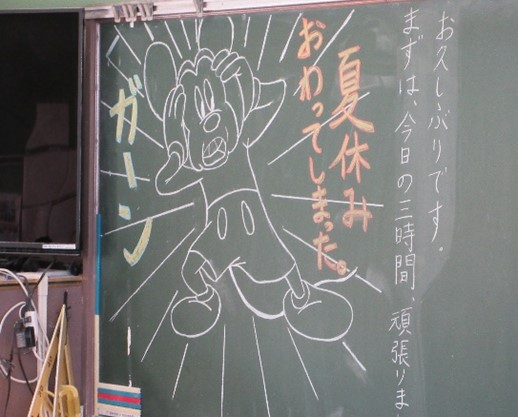 お久しぶりです。
まずは、今日の三時間、頑張りま
夏休み
おわってしまった。
ガーン